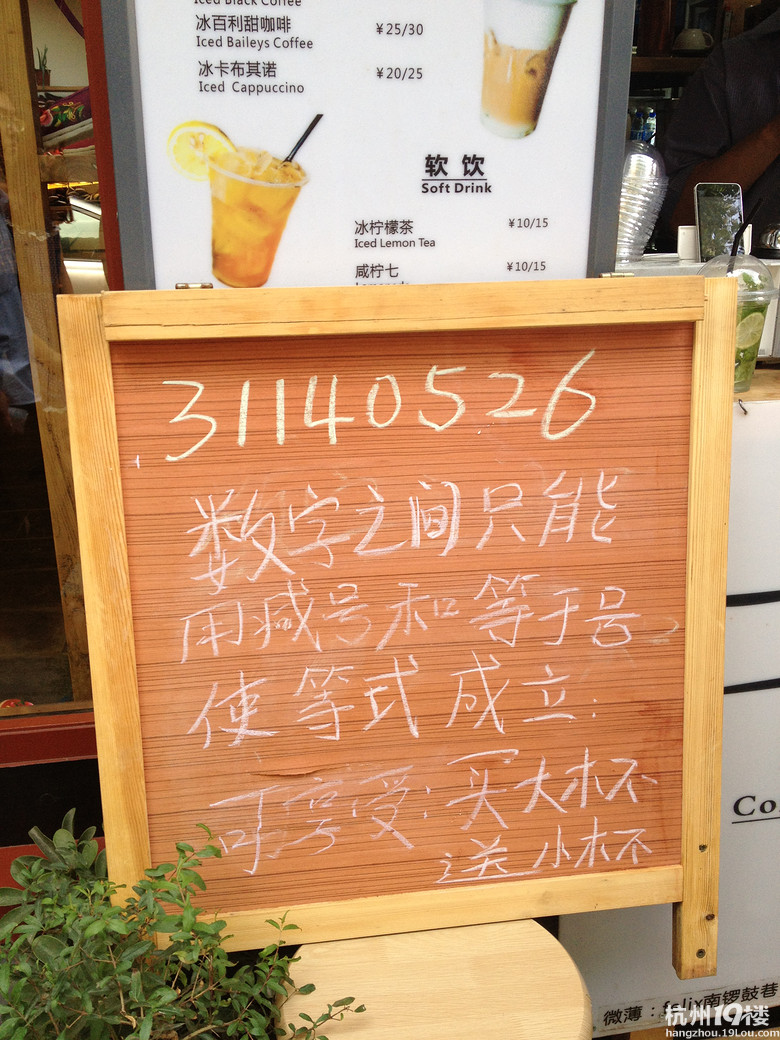 Iced Black Coffee
冰百利甜咖啡 ¥25/30
Iced Baileys Coffee
冰卡布其诺 ¥20/25
Iced Cappuccino
软饮
Soft Drink
冰柠檬茶 ¥10/15
Iced Lemon Tea
咸柠七 ¥10/15
31140526
数字之间只能
用减号和等于号
使等式成立.
可享受:买大杯
送小杯
Co
微薄:felix南锣鼓巷
杭州19楼
hangzhou.19Lou.com